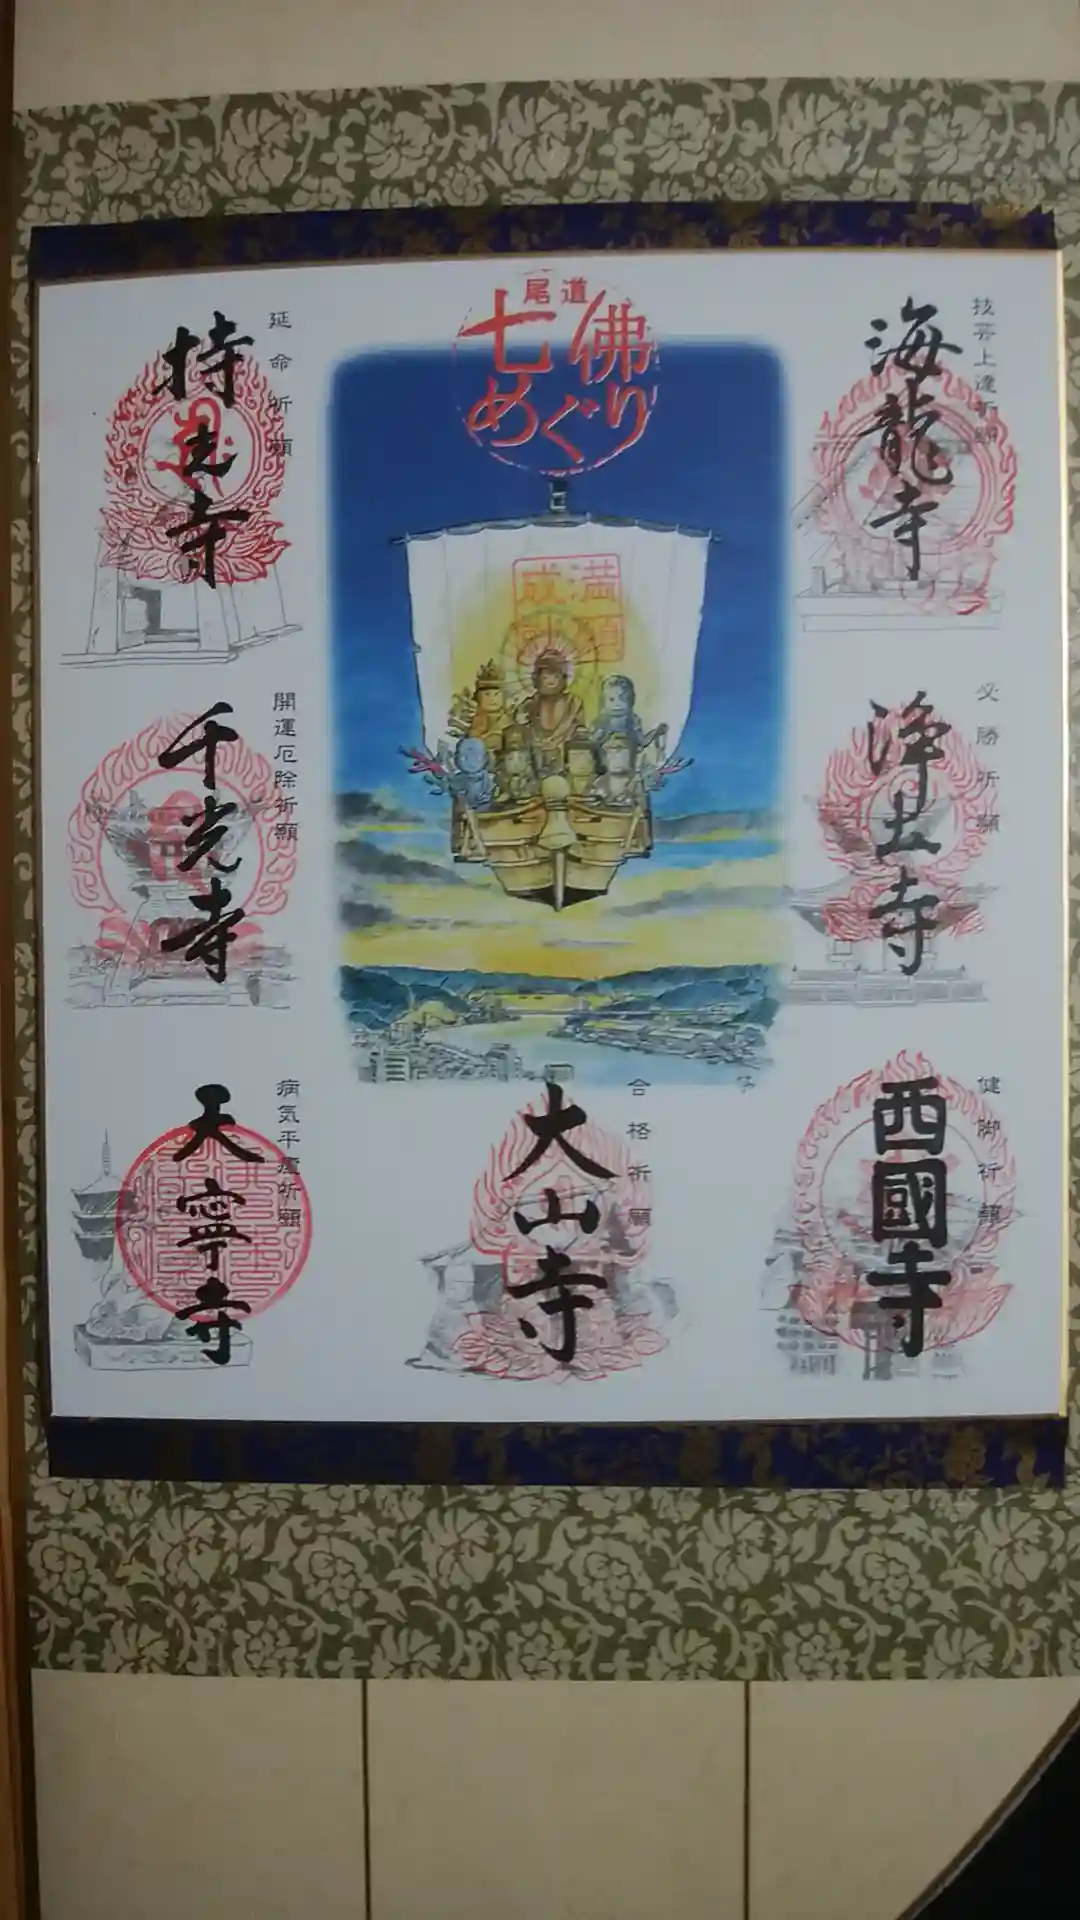 尾道
七佛
めぐり
満願
成就
技芸上達祈願
海龍寺
必勝祈願
浄土寺
健脚祈願
西國寺
合格祈願
大山寺
延命祈願
持光寺
開運厄除祈願
千光寺
病気平癒祈願
天寧寺